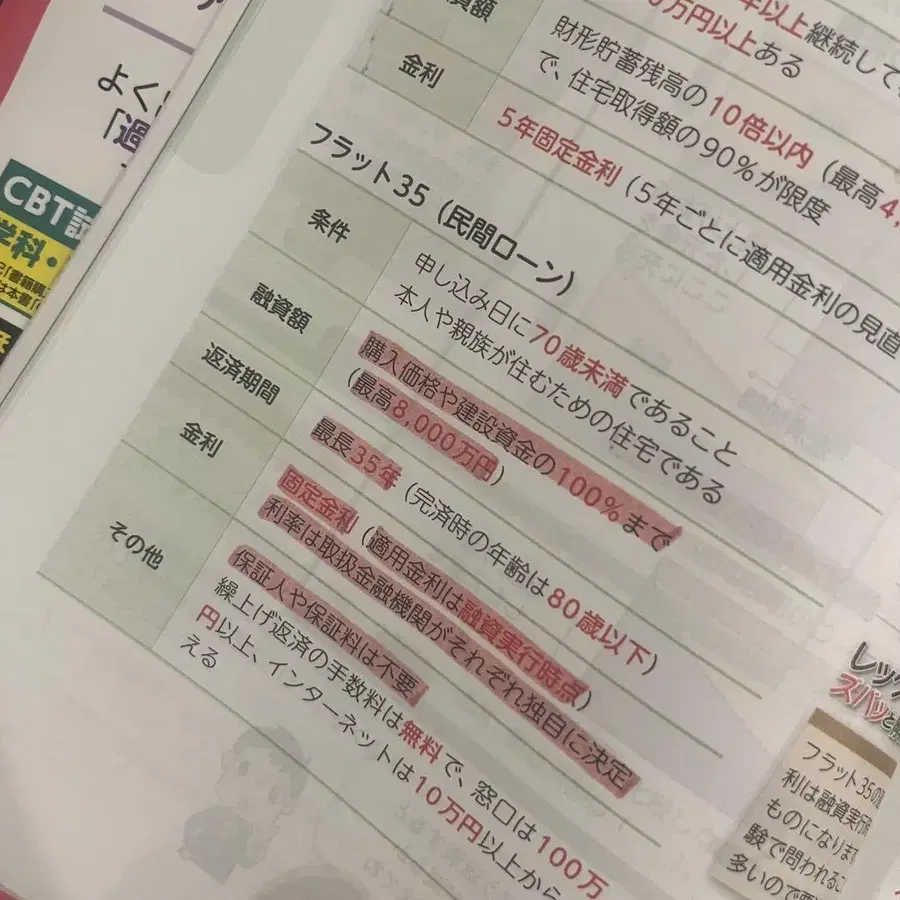 よく
「過
CBT試
学科・
額
年以上継続して
0万円以上ある
財形貯蓄残高の10倍以内（最高4,
で、住宅取得額の90％が限度
金利
5年固定金利（5年ごとに適用金利の見直
フラット35（民間ローン）
条件
申し込み日に70歳未満であること
本人や親族が住むための住宅である
融資額
購入価格や建設資金の100％まで
（最高8,000万円）
返済期間
最長35年（完済時の年齢は80歳以下）
金利
固定金利（適用金利は融資実行時点）
利率は取扱金融機関がそれぞれ独自に決定
その他
保証人や保証料は不要
繰上げ返済の手数料は無料で、窓口は100万
円以上、インターネットは10万円以上から
える
レッ
ズバッと
フラット35の
利は融資実行
ものになります
験で問われるこ
多いので